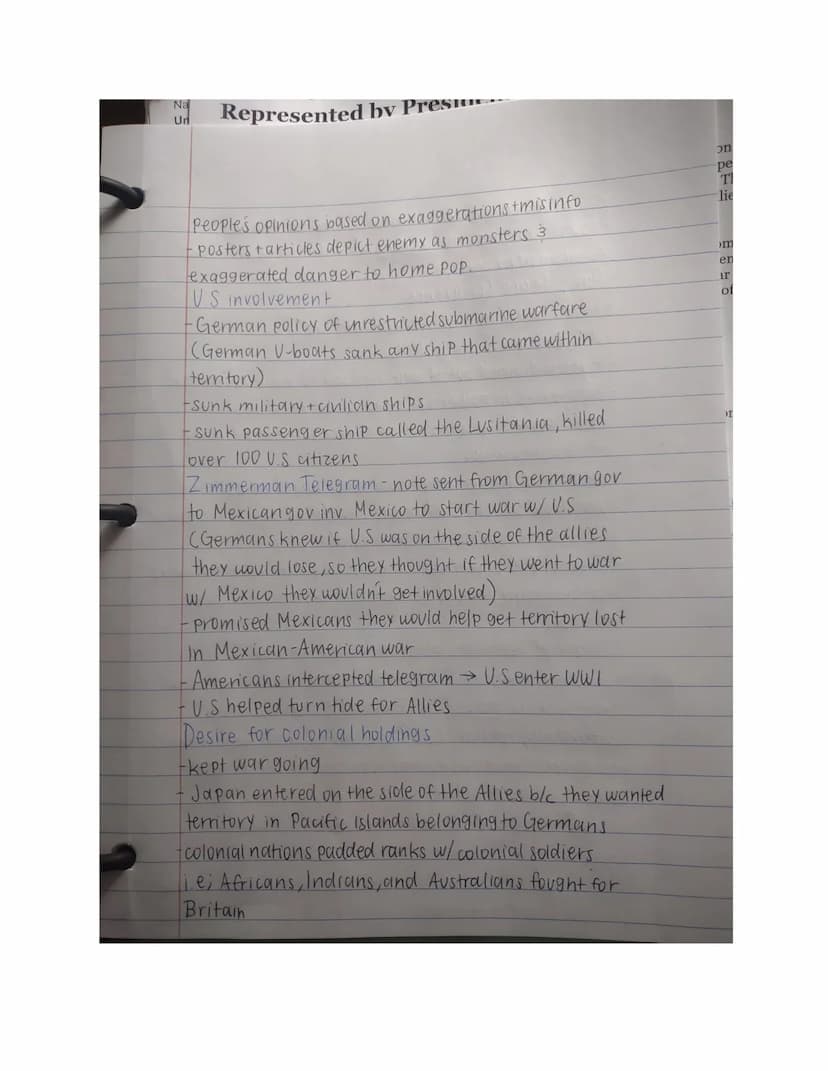 Na
Un
Represented by
people's opinions based on exaggerations + misinfo
- posters + articles depict enemy as monsters &
exaggerated danger to home pop.
U S involvement
- German policy of unrestricted submarine warfare
(German U-boats sank any ship that came within
territory)
- sunk military + civilian ships
- sunk passenger ship called the Lusitania, killed
over 100 U.S citizens
Zimmerman Telegram - note sent from German gov
to Mexican gov inv. Mexico to start war w/ U.S
(Germans knew if U.S was on the side of the allies
they would lose, so they thought if they went to war
w/ Mexico they wouldn't get involved)
- promised Mexicans they would help get territory lost
in Mexican-American war
- Americans intercepted telegram → U.S enter WWI
- U.S helped turn tide for Allies
Desire for colonial holdings
- kept war going
- Japan entered on the side of the Allies b/c they wanted
territory in Pacific Islands belonging to Germans
- colonial nations padded ranks w/ colonial soldiers
i.e; Africans, Indians, and Australians fought for
Britain